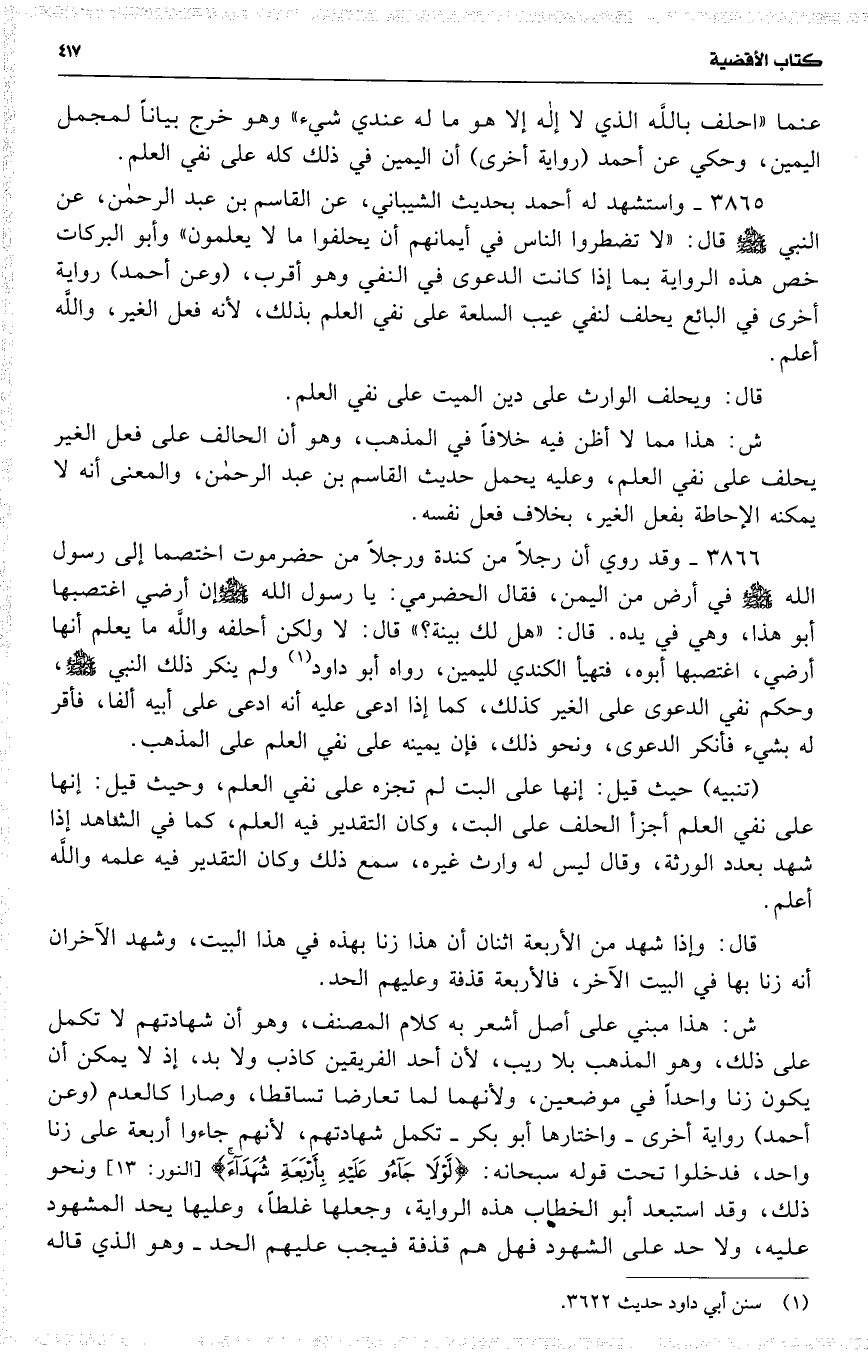 كتاب الأقضية
٤١٧
عنما «احلف باللَّه الذي لا إلٰه إلا هو ما له عندي شيء» وهو خرج بياناً لمجمل
اليمين، وحكي عن أحمد (رواية أخرى) أن اليمين في ذلك كله على نفي العلم.
٣٨٦٥ ـ واستشهد له أحمد بحديث الشيباني، عن القاسم بن عبد الرحمٰن، عن
النبي ﷺ قال: «لا تضطروا الناس في أيمانهم أن يحلفوا ما لا يعلمون» وأبو البركات
خص هذه الرواية بما إذا كانت الدعوى في النفي وهو أقرب، (وعن أحمد) رواية
أخرى في البائع يحلف لنفي عيب السلعة على نفي العلم بذلك، لأنه فعل الغير، واللَّه
أعلم.
قال: ويحلف الوارث على دين الميت على نفي العلم.
ش: هذا مما لا أظن فيه خلافاً في المذهب، وهو أن الحالف على فعل الغير
يحلف على نفي العلم، وعليه يحمل حديث القاسم بن عبد الرحمٰن، والمعنى أنه لا
يمكنه الإحاطة بفعل الغير، بخلاف فعل نفسه.
٣٨٦٦ ـ وقد روي أن رجلاً من كندة ورجلاً من حضرموت اختصما إلى رسول
الله ﷺ في أرض من اليمن، فقال الحضرمي: يا رسول الله ﷺ إن أرضي اغتصبها
أبو هذا، وهي في يده. قال: «هل لك بينة؟» قال: لا ولكن أحلفه واللَّه ما يعلم أنها
أرضي، اغتصبها أبوه، فتهيأ الكندي لليمين، رواه أبو داود(١) ولم ينكر ذلك النبي ﷺ،
وحكم نفي الدعوى على الغير كذلك، كما إذا ادعى عليه أنه ادعى على أبيه ألفا، فأقر
له بشيء فأنكر الدعوى، ونحو ذلك، فإن يمينه على نفي العلم على المذهب.
(تنبيه) حيث قيل: إنها على البت لم تجزه على نفي العلم، وحيث قيل: إنها
على نفي العلم أجزأ الحلف على البت، وكان التقدير فيه العلم، كما في الشاهد إذا
شهد بعدد الورثة، وقال ليس له وارث غيره، سمع ذلك وكان التقدير فيه علمه واللَّه
أعلم.
قال: وإذا شهد من الأربعة اثنان أن هذا زنا بهذه في هذا البيت، وشهد الآخران
أنه زنا بها في البيت الآخر، فالأربعة قذفة وعليهم الحد.
ش: هذا مبني على أصل أشعر به كلام المصنف، وهو أن شهادتهم لا تكمل
على ذلك، وهو المذهب بلا ريب، لأن أحد الفريقين كاذب ولا بد، إذ لا يمكن أن
يكون زنا واحداً في موضعين، ولأنهما لما تعارضا تساقطا، وصارا كالعدم (وعن
أحمد) رواية أخرى ـ واختارها أبو بكر ـ تكمل شهادتهم، لأنهم جاءوا أربعة على زنا
واحد، فدخلوا تحت قوله سبحانه: ﴿لَّوْلَا جَآءُو عَلَيْهِ بِأَرْبَعَةِ شُهَدَآءَۚ﴾ [النور: ١٣] ونحو
ذلك، وقد استبعد أبو الخطاب هذه الرواية، وجعلها غلطاً، وعليها يحد المشهود
عليه، ولا حد على الشهود فهل هم قذفة فيجب عليهم الحد ـ وهو الذي قاله
(١) سنن أبي داود حديث ٣٦٢٢.